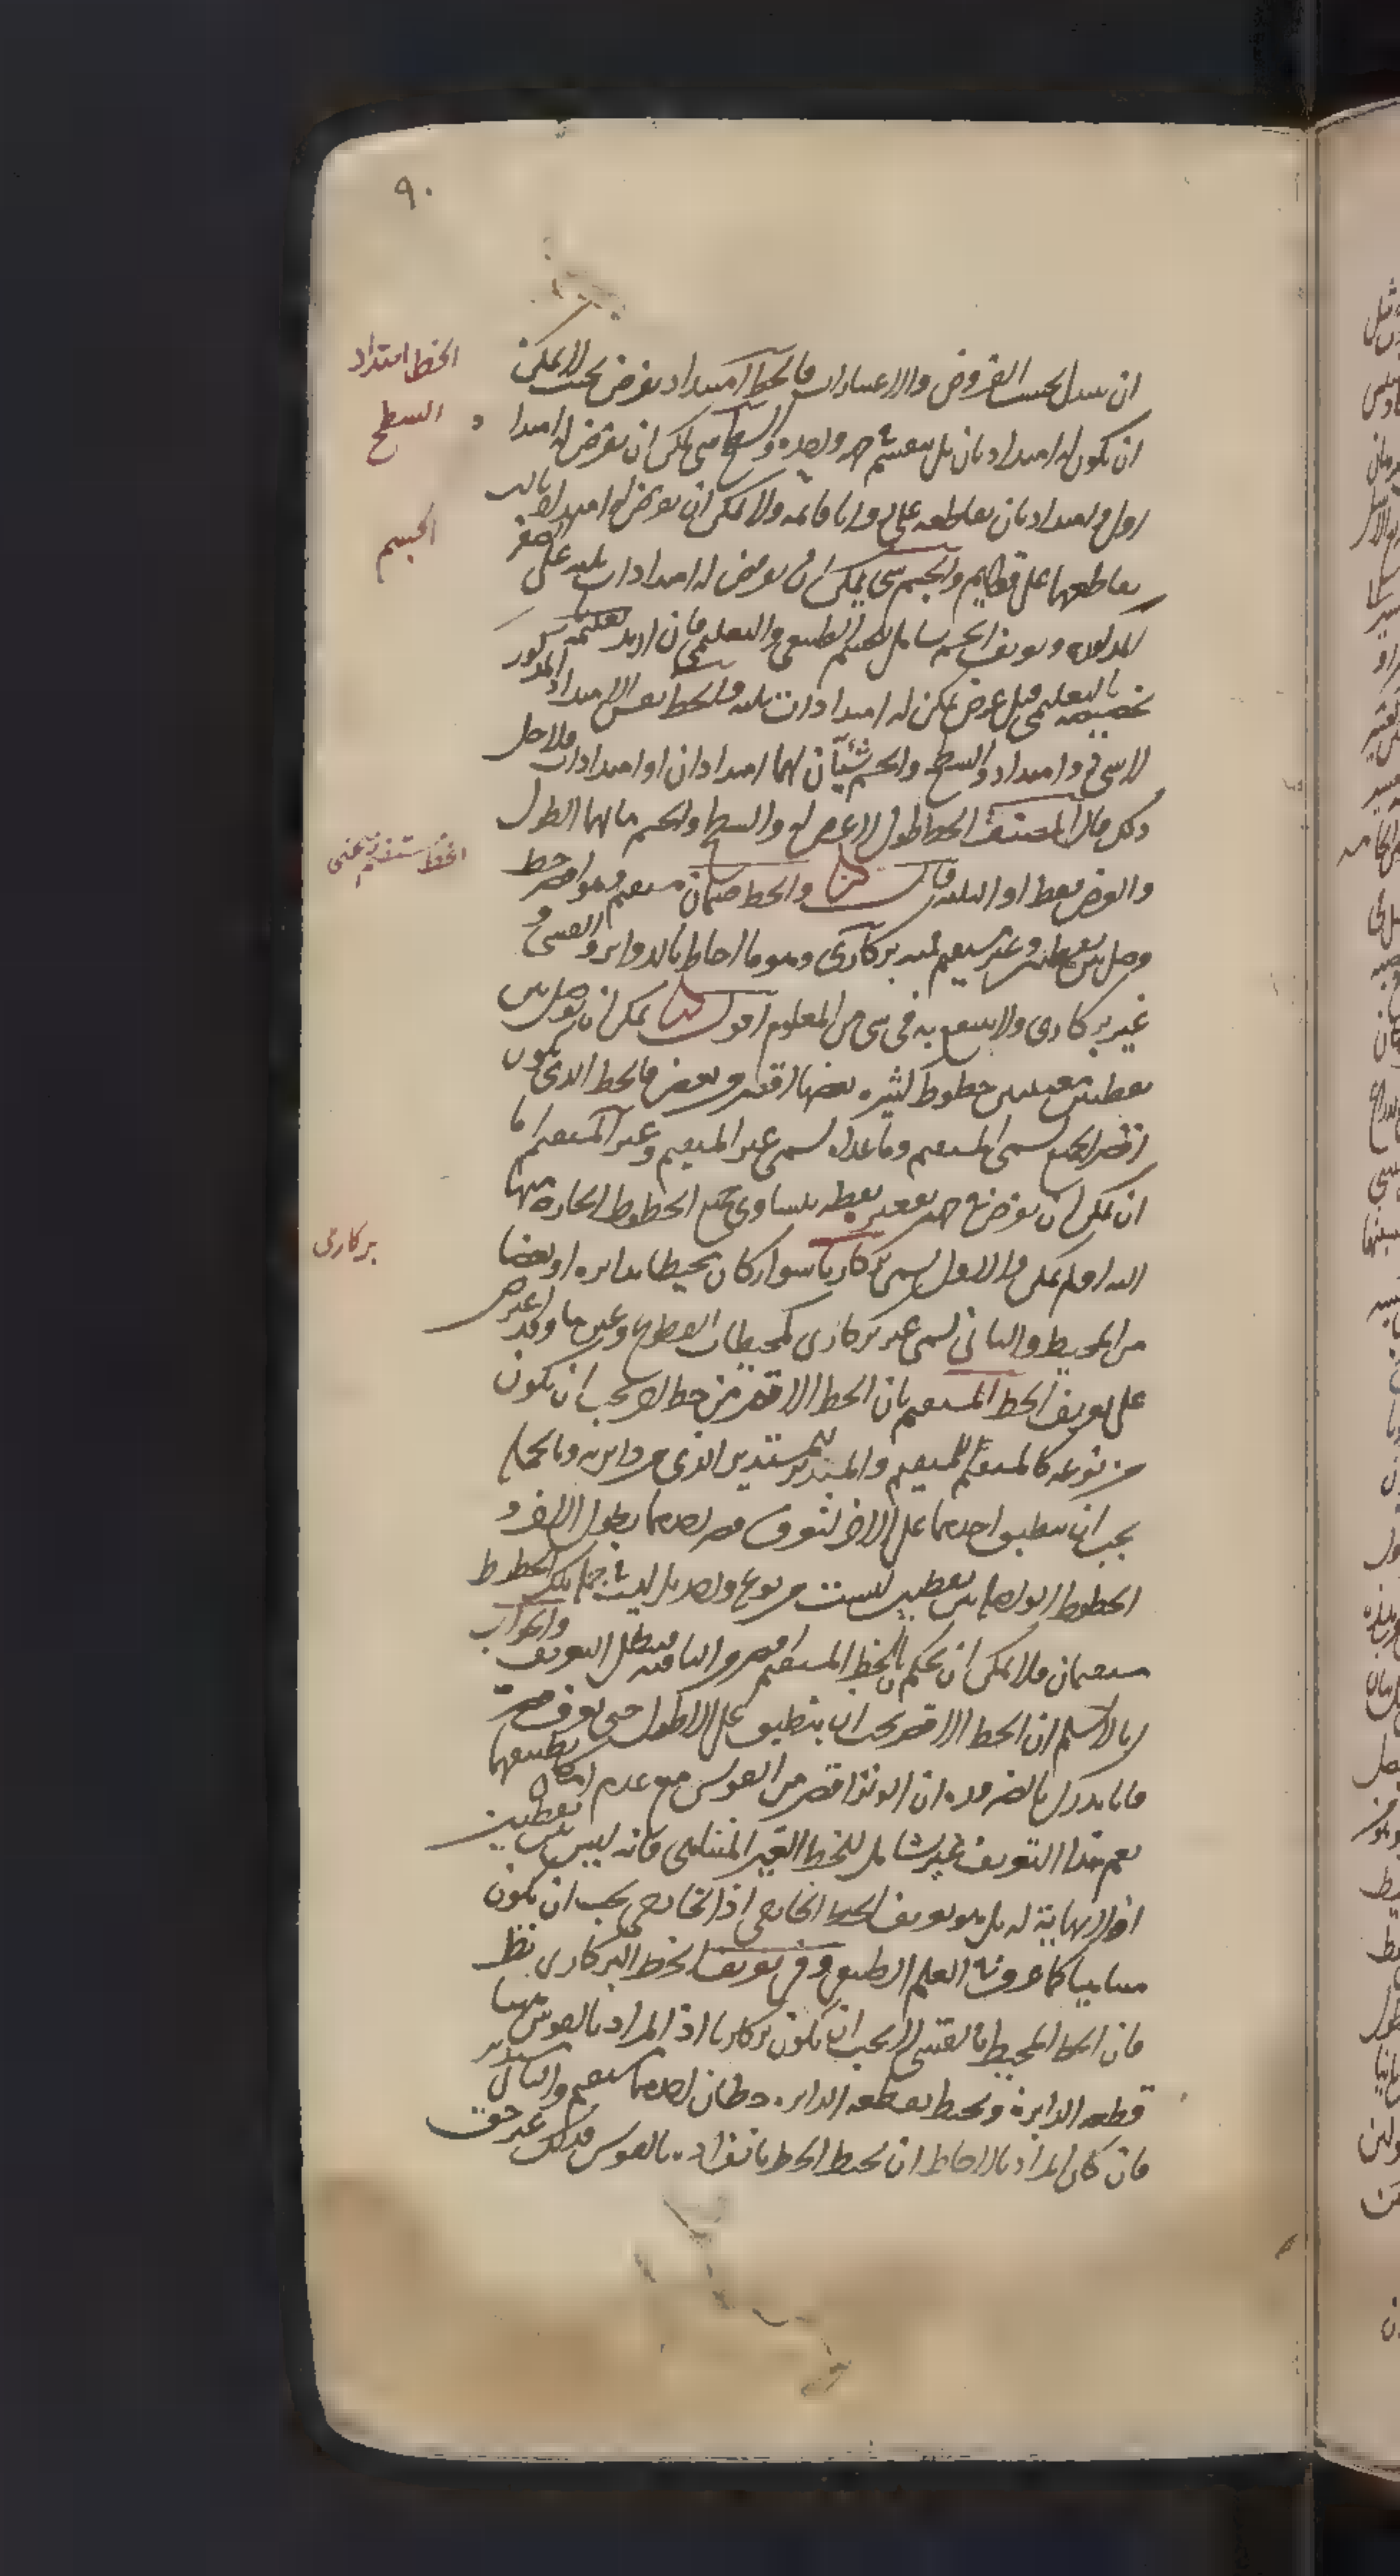 ٩٠
الخط امتداد
السطح
الجسم
الخط مستقيم منحنى
بركارى
ان تبدل بحسب الفروض والاعتبارات فالخط امتداد يفرض بحيث لا يمكن
ان يكون له امتدادان بل ينقسم فى جهة واحدة والسطح شى يمكن ان يفرض له امتدا د
وامتدادان يقاطعه على زوايا قائمه ولا يمكن ان يفرض له امتداد ثالث
يقاطعهما على قوايم والجسم شى يمكن ان يفرض له امتدادات ثلثه على
المذكوره وتعريف الجسم شامل للجسم الطبيعى والتعليمى فان اريد
بالتعليمى قيل عرض يمكن له امتدادات ثلثه فالخط نفس الامتداد المذكور
لا شى ذو امتداد والسطح والجسم شيئان لهما امتدادان او امتدادات ولاجل
ذلك قال المصنف الخط طول لا عرض له والسطح والجسم ما لهما الطول
والعرض فقط او الثلثه قال والخط صنفان مستقيم وهو اقصر خط
وصل بين نقطتين وغير مستقيم فمنه بركارى وهو ما احاط بالدواير والقسى و
غير بركارى ولا ينتفع به فى شى من العلوم اقول يمكن ان يوصل بين
نقطتين معينتين خطوط كثيره بعضها اقصر من بعض فالخط الذى يكون
اقصر الجميع يسمى المستقيم وما عداه يسمى غير المستقيم وغير المستقيم اما
ان يمكن ان يفرض فى جهة تقعيره نقطه يتساوى جميع الخطوط الخارجه منها
اليه او لم يمكن والاول يسمى بركاريا سوا كان محيطا بدايره او بعضا
من المحيط والثانى يسمى غير بركارى كمحيطات القطوع وغيرها وقد اعترض
على تعريف الخط المستقيم بان الخط الاقصر من خط اخر يجب ان يكون
من نوعه كالمستقيم للمستقيم والمستدير للمستدير الذى من دايرته وبالجملة
يجب ان ينطبق احدهما على الاخر ليعرف قصر احدهما بطول الاخر و
الخطوط الواصله بين نقطتين ليست من نوع واحد بل ليس فى جملة تلك الخطوط
مستقيمان فلا يمكن ان يحكم بان الخط المستقيم اقصر والباقيه فبطل التعريف والجواب
انا لا نسلم ان الخط الاقصر يجب ان ينطبق على الاطول حتى يعرف قصره
فانا ندرك بالضروره ان الوتر اقصر من القوس مع عدم امكان تطبيقهما
نعم هذا التعريف غير شامل للخط الغير المتناهى فانه ليس بين نقطتين
اذ لا نهاية له بل هو تعريف الخط الخارجى اذ الخارجى يجب ان يكون
متناهيا كما عرف فى العلم الطبيعى وفى تعريف الخط البركارى نظر
فان الخط المحيط بالقسى لا يجب ان يكون بركاريا اذ المراد بالقوس ههنا
قطعه الدايرة ومحيط بقطعه الدايره خطان احدهما مستقيم والثانى مستدير
فان كان المراد بالاحاطه ان يحيط الخط بانفراده بالقوس فذلك غير حق